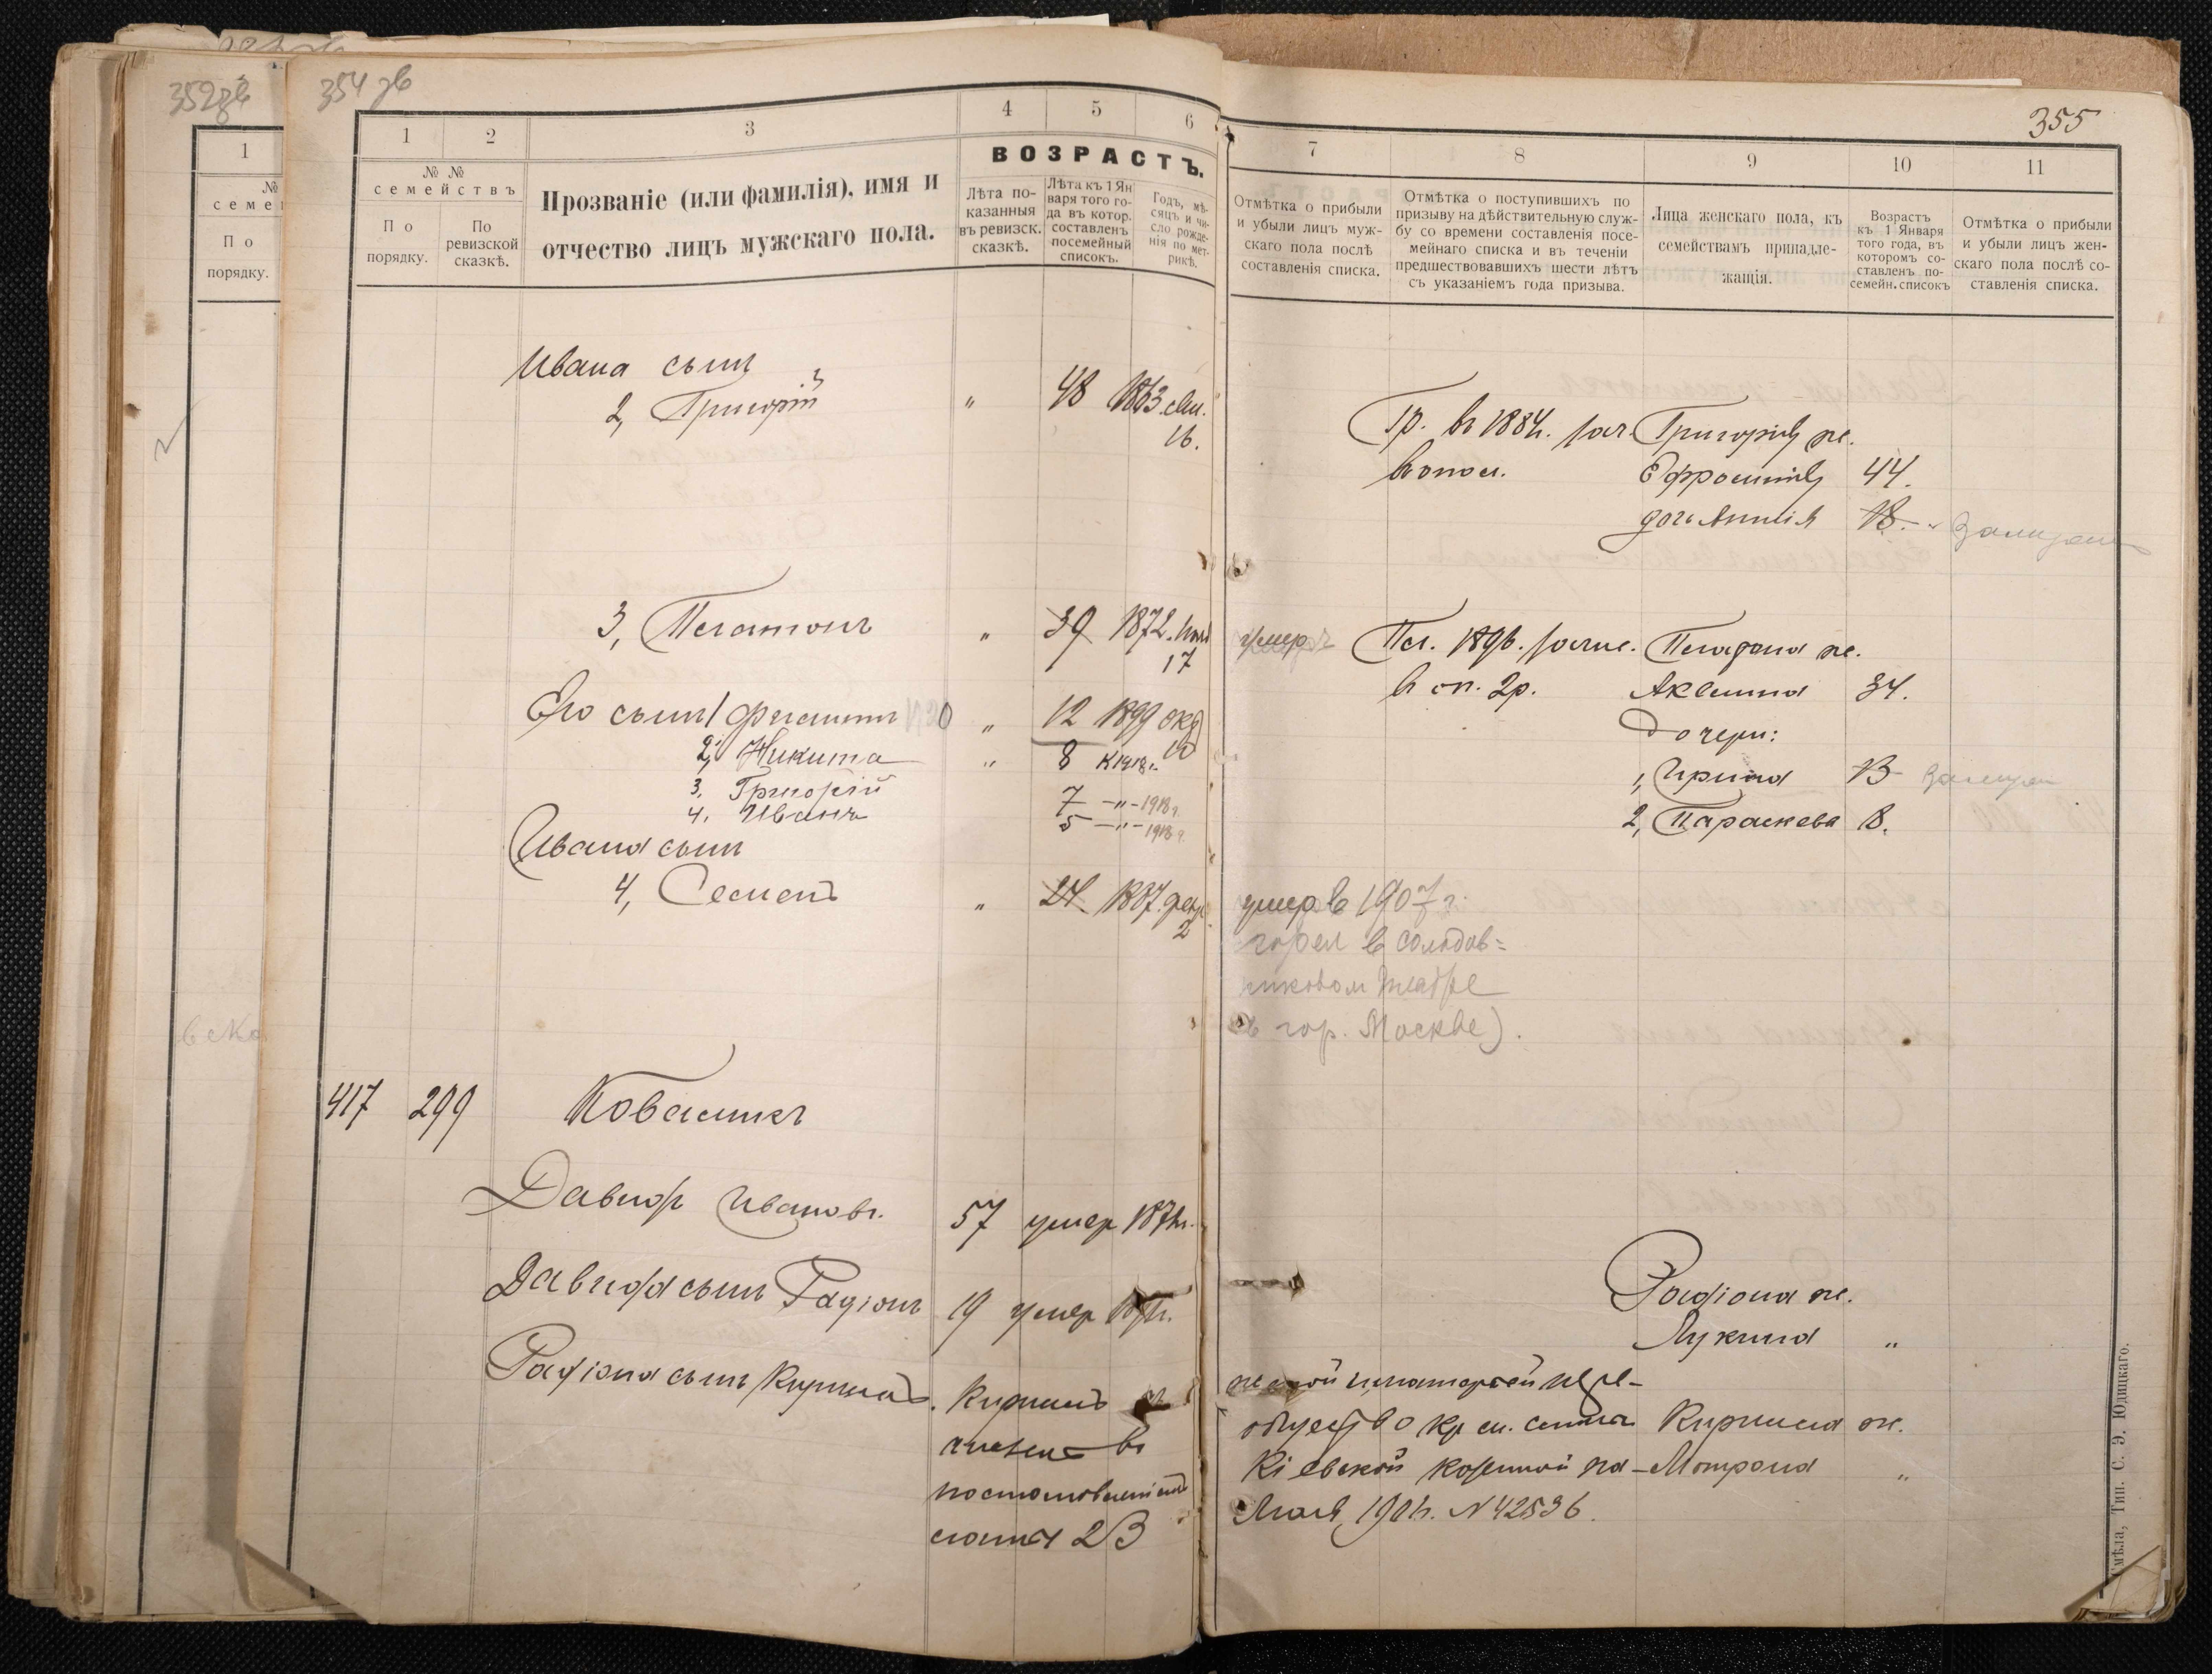 352зв
1
354 зв
1 2 3 4 5 6
№ №
семействъ
По
порядку.
По
ревизской
сказкѣ.
Прозваніе (или фамилія), имя и
отчество лицъ мужскаго пола.
ВОЗРАСТЪ.
Лѣта по-
казанныя
въ ревизск.
сказкѣ.
Лѣта къ 1 Ян
варя того го-
да въ котор.
составленъ
посемейный
списокъ.
Годъ, мѣ-
сяцъ и чи-
сло рожде-
нія по мет-
рикѣ.
Ивана сынъ
2, Григорій " 48 1863
16.
3, Платонъ " 39 1872
17
Его сынъ 1 " 12 1899 окт
10
2, Никита " 8 к 1918 г.
3, Григорій 7 -"- 1918 г.
4, Иванъ 5 -"- 1918 г.
Ивана сынъ
4, Семенъ " 24 1887
2
417 299 Ковалик
Давид Иванов. 57 умер
Давида сынъ Радіонъ 19 умер
Радіона сынъ Кирилъ. Кирилъ
въ
2 В
355
7 8 9 10 11
Отмѣтка о прибыли
и убыли лицъ муж-
скаго пола послѣ
составленія списка.
Отмѣтка о поступившихъ по
призыву на дѣйствительную служ-
бу со времени составленія посе-
мейнаго списка и въ теченіи
предшествовавшихъ шести лѣтъ
съ указаніемъ года призыва.
Лица женскаго пола, къ
семействамъ принадле-
жащія.
Возрастъ
къ 1 Января
того года, въ
которомъ со-
ставленъ по-
семейн. списокъ
Отмѣтка о прибыли
и убыли лицъ жен-
скаго пола послѣ со-
ставленія списка.
Гр. в 1884г. зач. Григорія ж.
в опол. Ефросинія 44.
дочь 18.
умер Пл. 1896. зачис. Платона ж.
в оп. 2р. Аксинья 34.
Дочери:
1, Ирина 13
2, Параскева 8.
умер в 1907 г.
горел в Солодов=
никовом театре
в гор. Москве).
Радіона ж.
Лукина "
общество Кирила ж.
Кіевской казенной па- Мотрона "
N 42536.
Смѣла, Тип. С. Э. Юдицкаго.